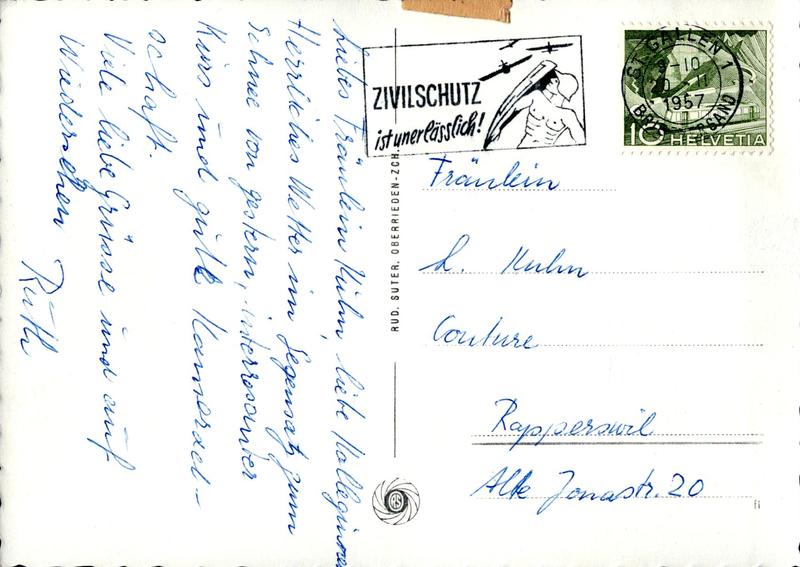 Liebes Fräulein Kühn, liebe Kolleginnen
Herrliches Wetter im Gegensatz zum
Schnee von gestern, interressanter
Kurs und gute Kamerad-
schaft.
Viele liebe Grüsse und auf
Wiedersehen Ruth
ZIVILSCHUTZ
ist unerlässlich!
ST. GALLEN 1
1957
BRIEFVERSAND
10 HELVETIA
RUD. SUTER, OBERRIEDEN-ZCH.
Fräulein
h. Kuhn
Couture
Rapperswil
Alte Jonastr. 20
RS